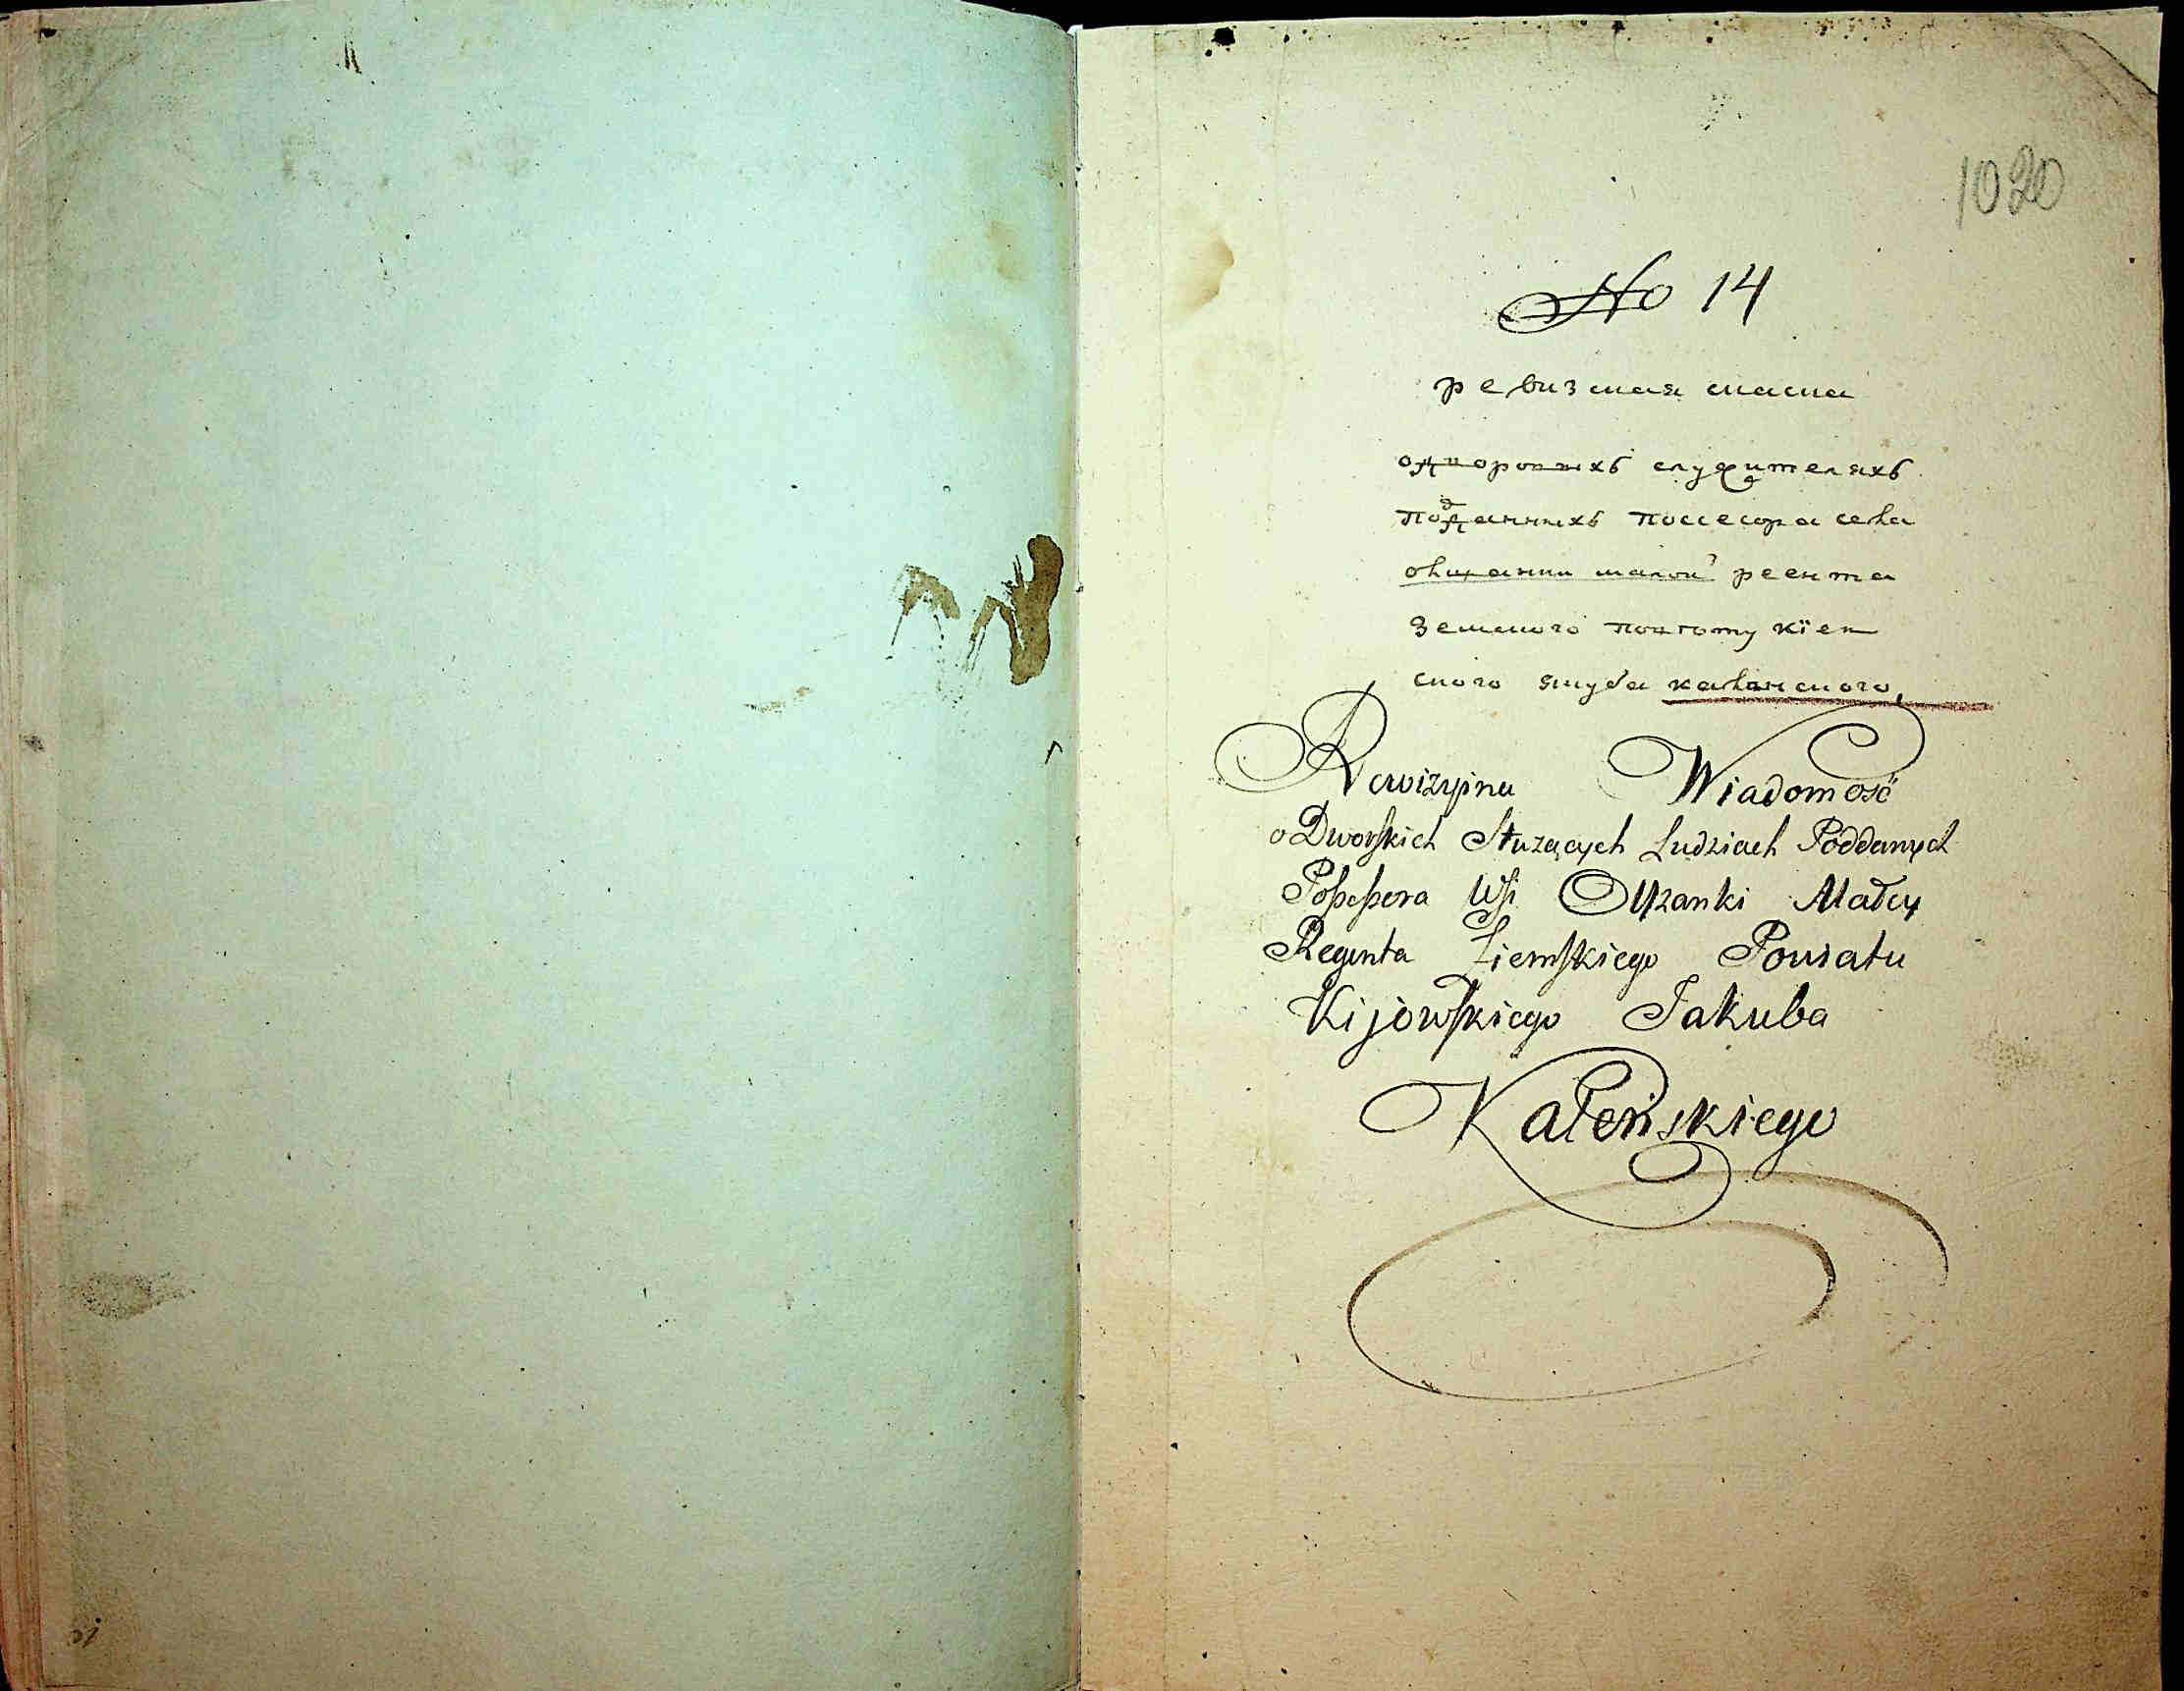 1020
No 14
ревизкая скаска
о дворовыхъ служителяхъ
подданныхъ поссесора села
олшанки малой реента
земского повтоту кіев
ского якуба каленского,
Rewizyina Wiadomość
o Dworskich Służących Ludziach Poddanych
Possessora Wsi Olszanki Małey
Regenta Ziemskiego Powiatu
Kijowskiego Jakuba
Kałeńskiego